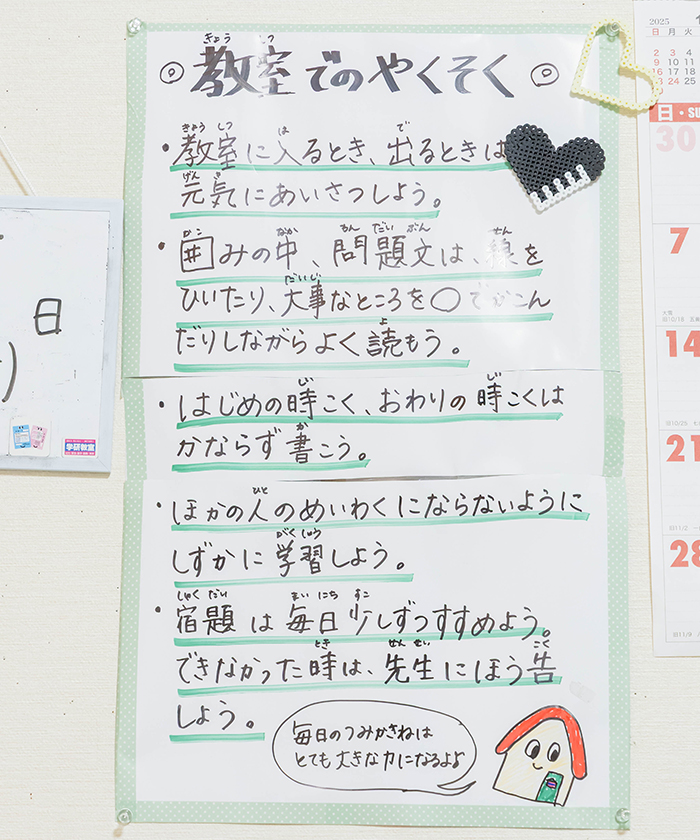 教室でのやくそく
・教室に入るとき、出るときは
元気にあいさつしよう。
・囲みの中、問題文は、線を
ひいたり、大事なところを〇でかこん
だりしながらよく読もう。
・はじめの時こく、おわりの時こくは
かならず書こう。
・ほかの人のめいわくにならないように
しずかに学習しよう。
・宿題は毎日少しずつすすめよう。
できなかった時は、先生にほう告
しよう。
毎日のつみかさねは
とても大きな力になるよ
日
2025
日 月 火
2 3 4
9 10 11
16 17 18
23 24 25
日・SU
30
7
14
21
28